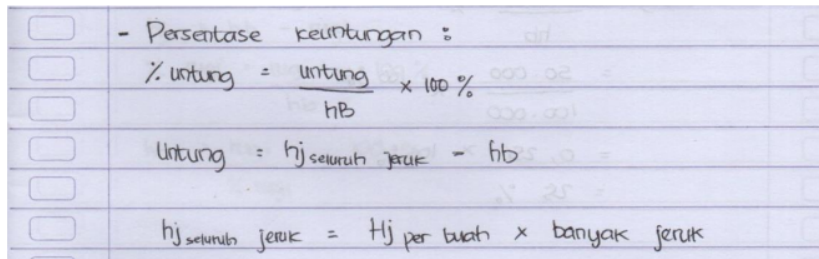 - Persentase keuntungan :
% untung = untung / hB × 100 %
Untung = hj seluruh jeruk - hb
hj seluruh jeruk = Hj per buah × banyak jeruk